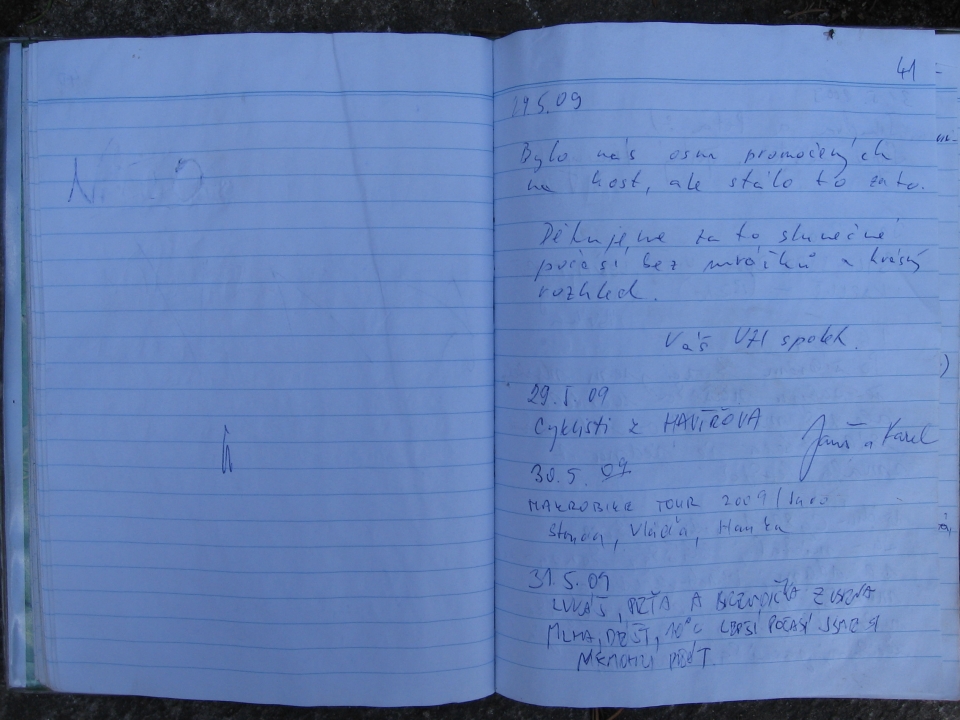 41
29.5.09
Bylo nás osm promočených
na kost, ale stálo to zato.
Děkujeme za to slunečné
počasí bez mráčků a krásný
rozhled.
Váš spolek.
29.5.09
Cyklisti z HAVÍŘOVA
Janis a Karel
30.5.09
MAKROBIKE TOUR 2009 / Jaro
Standa, Vláďa, Hanka
31.5.09
LUKÁŠ, PEŤA A Z
MLHA, DÉŠŤ, 10°C LEPŠÍ POČASÍ JSME SI
NEMOHLI PŘÁT.